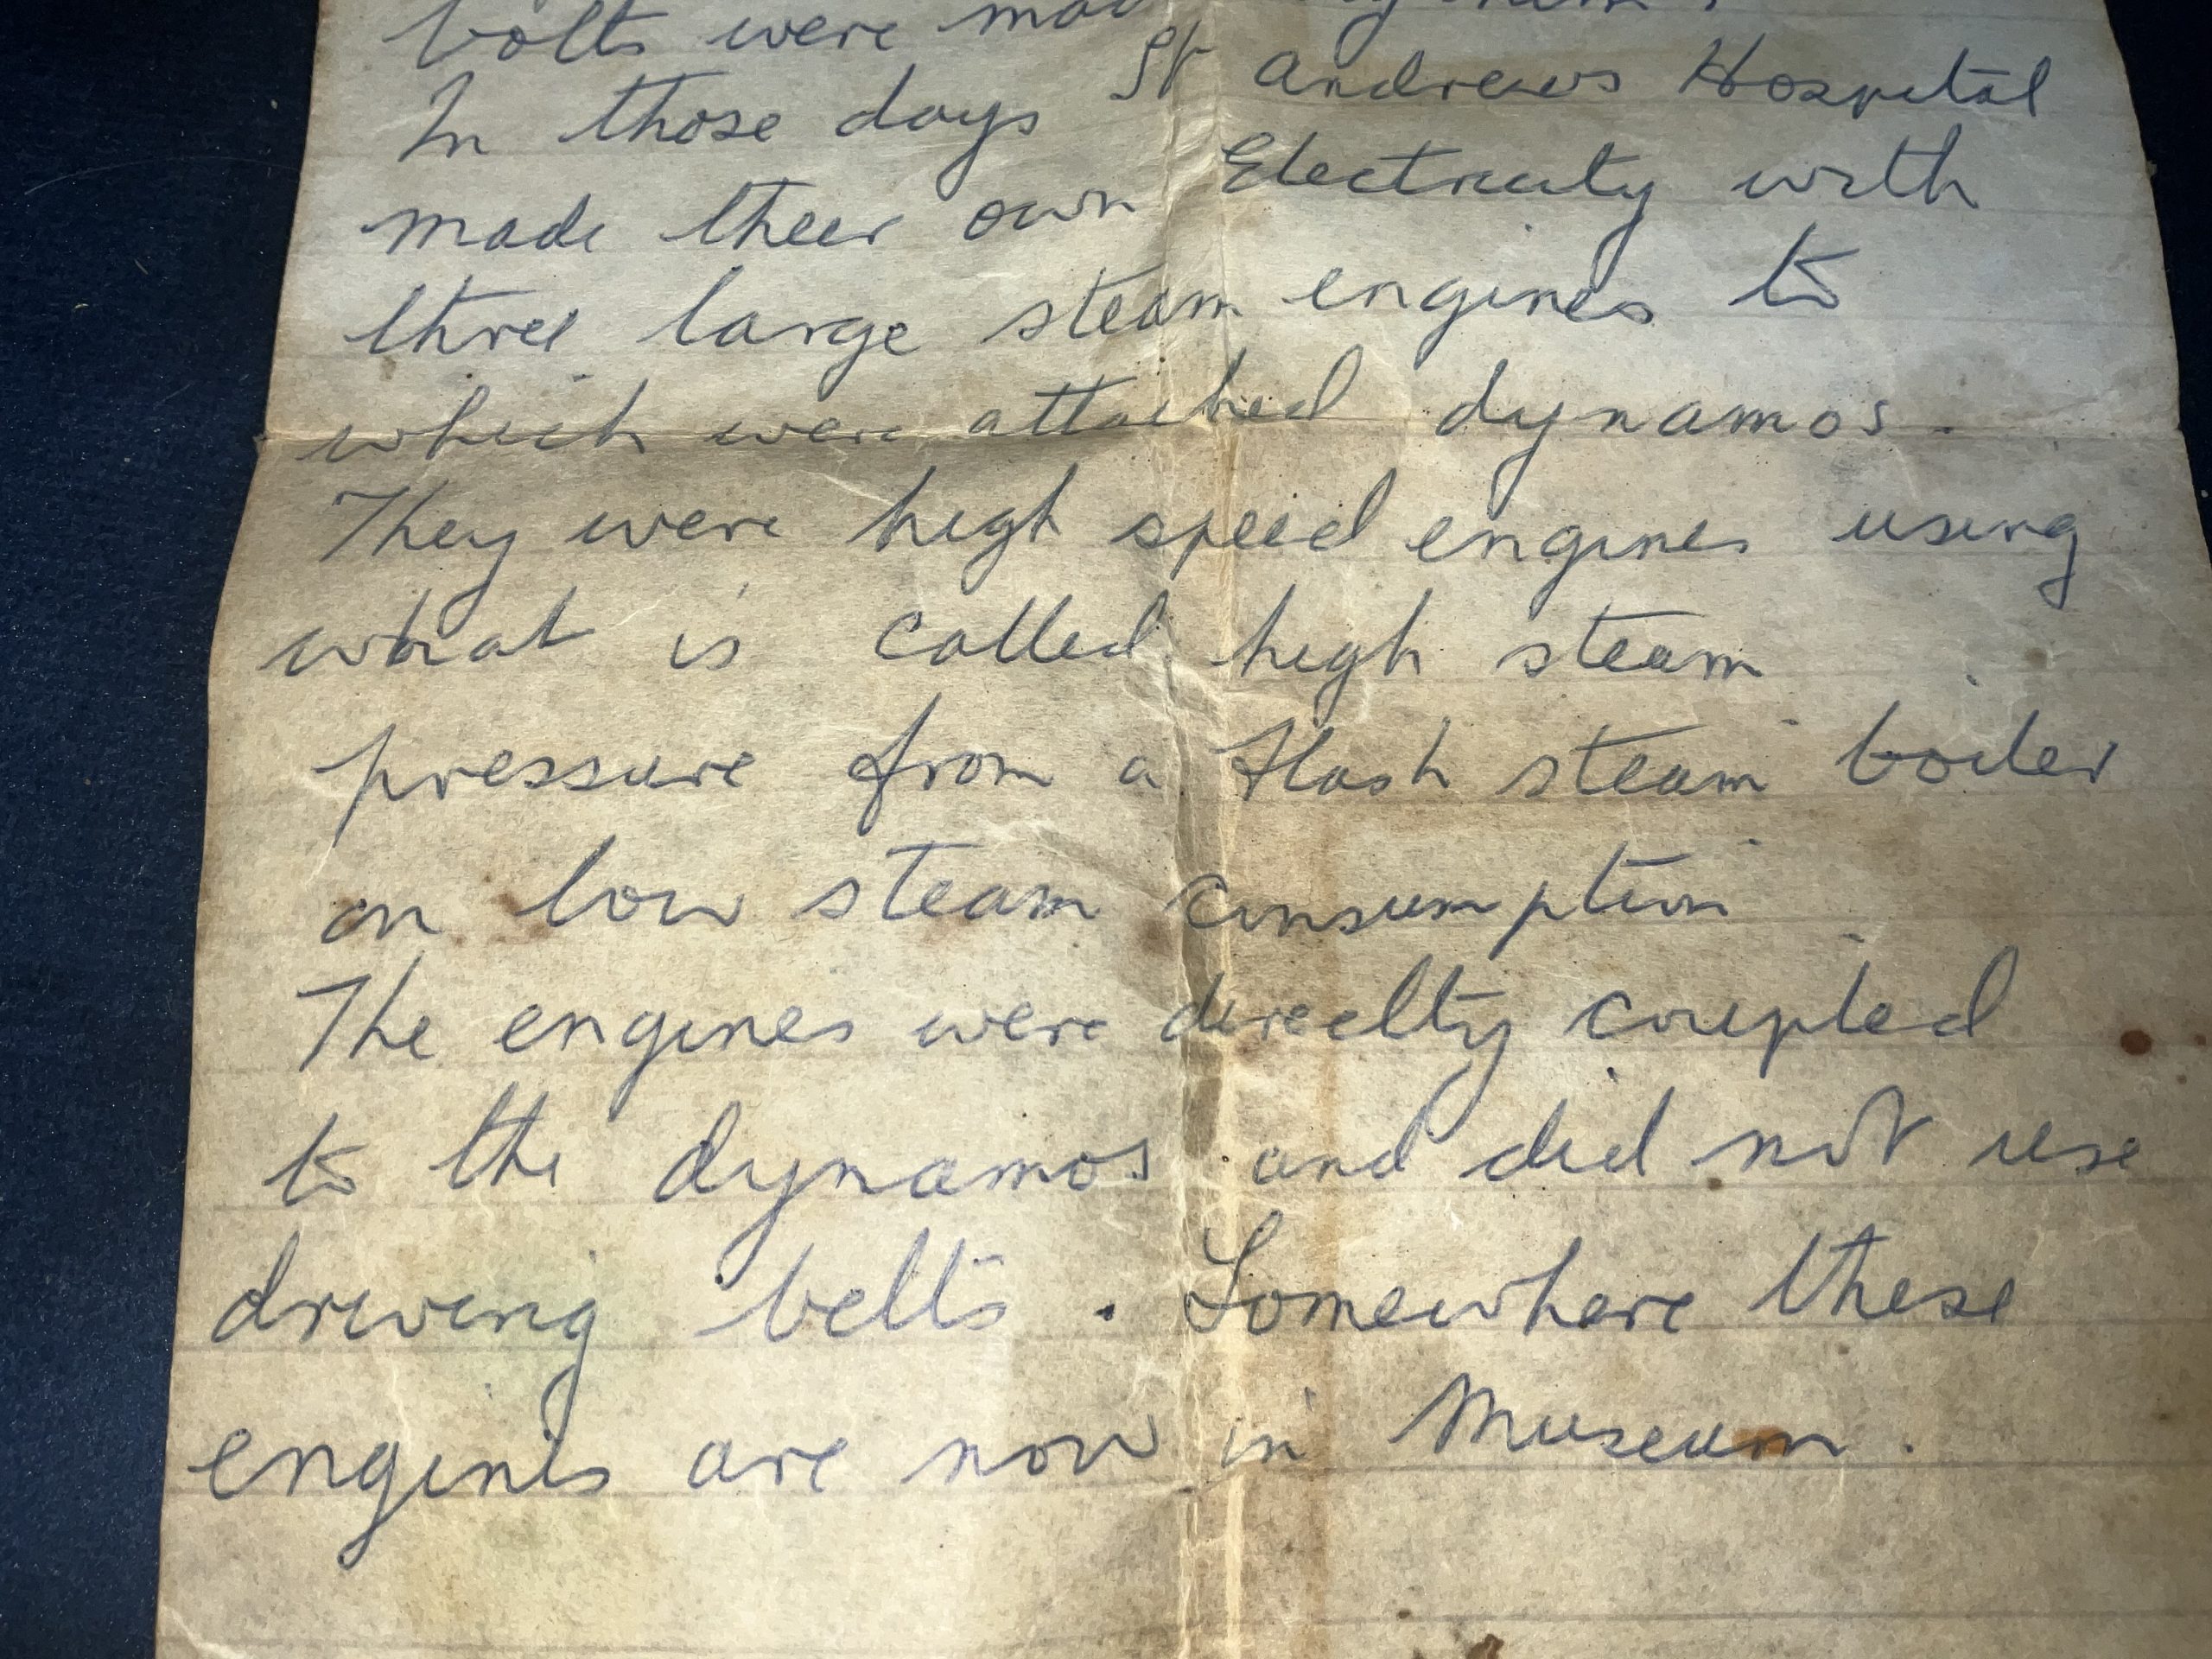 bolts were
In those days St Andrews Hospital
made their own Electricity with
three large steam engines to
which were attached dynamos.
They were high speed engines using
what is called high steam
pressure from a flash steam boiler
on low steam consumption
The engines were direclty coupled
to the dynamos and did not use
driving belts. Somewhere these
engines are now in Museum.